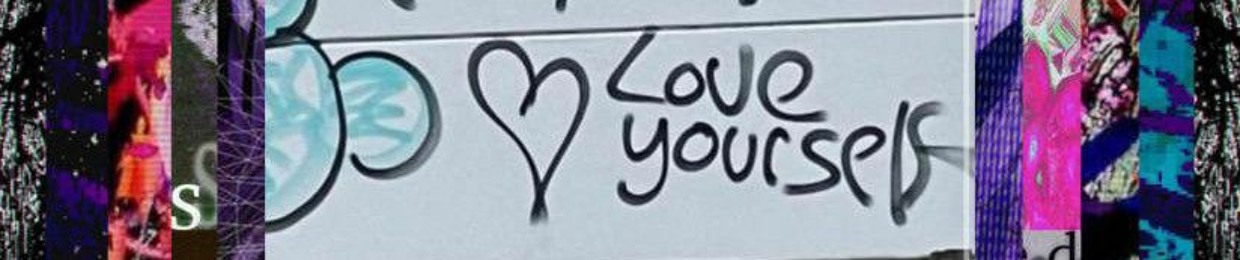 Love
yourself
s
d